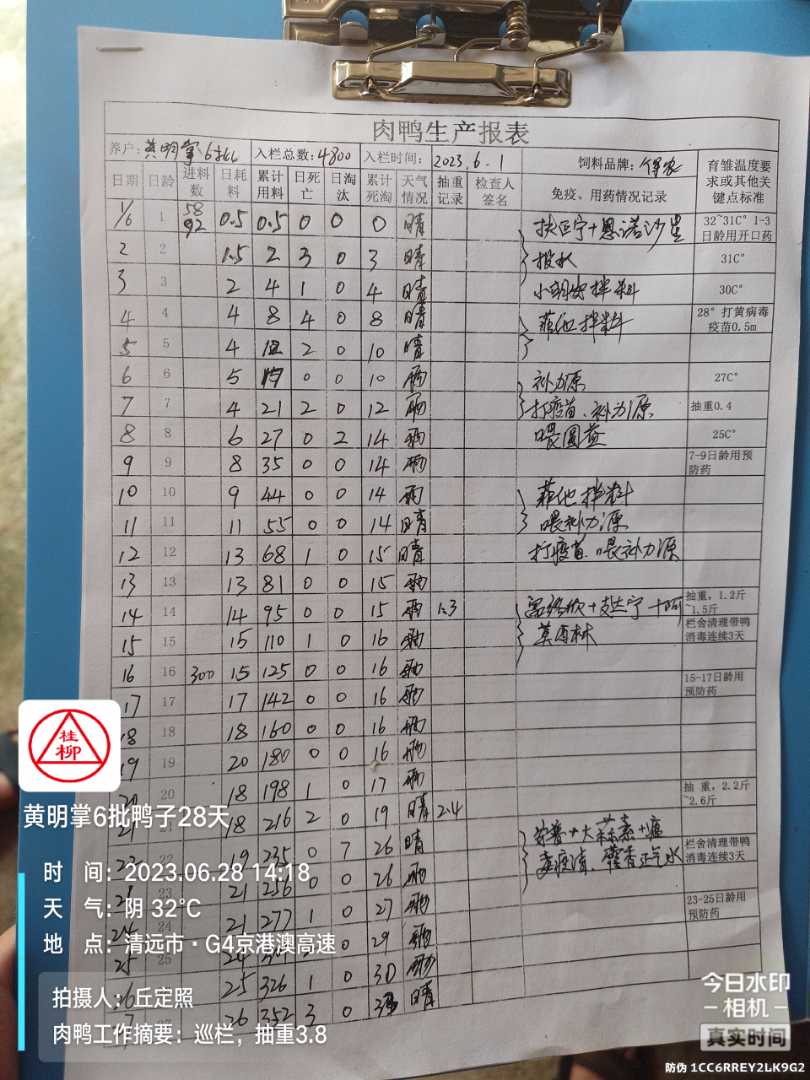 肉鸭生产报表
养户: 黄明掌6批 入栏总数: 4800 入栏时间: 2023.6.1 饲料品牌: 育雏温度要求或其他关键点标准
日期 日龄 进料数 日耗料 累计用料 日死亡 日淘汰 累计死淘 天气情况 抽重记录 检查人签名 免疫、用药情况记录
1/6 1 58 92 0.5 0.5 0 0 0 晴 扶正宁+恩诺沙星 32~31C° 1-3日龄用开口药
2 2 1.5 2 3 0 3 晴 投水 31C°
3 3 2 4 1 0 4 晴 拌料 30C°
4 4 4 8 4 0 8 晴 拌料 28° 打黄病毒疫苗0.5m
5 5 4 12 2 0 10 晴
6 6 5 17 0 0 10 雨 补力源 27C°
7 7 4 21 2 0 12 雨 打疫苗、补力源 抽重0.4
8 8 6 27 0 2 14 雨 喂 25C°
9 9 8 35 0 0 14 雨 7-9日龄用预防药
10 10 9 44 0 0 14 雨 拌料
11 11 11 55 0 0 14 晴 喂补力源
12 12 13 68 1 0 15 晴 打疫苗、喂补力源
13 13 13 81 0 0 15 雨
14 14 14 95 0 0 15 雨 1.3 抽重,1.2斤~1.5斤
15 15 15 110 1 0 16 雨 莫西林 栏舍清理带鸭消毒连续3天
16 16 300 15 125 0 0 16 雨 15-17日龄用预防药
17 17 17 142 0 0 16 雨
18 18 18 160 0 0 16 雨
19 19 20 180 0 0 16 雨
20 20 18 198 1 0 17 雨 抽 重,2.2斤~2.6斤
21 18 216 2 0 19 晴 2.4
22 22 19 235 0 7 26 晴 栏舍清理带鸭消毒连续3天
23 21 256 0 0 26 雨 藿香正气水
24 24 21 277 1 0 27 雨 23-25日龄用预防药
25 25 24 0 29 雨
25 326 1 0 30 雨
26 352 3 0 33 晴
桂柳
黄明掌6批鸭子28天
时 间:2023.06.28 14:18
天 气:阴 32°C
地 点:清远市·G4京港澳高速
拍摄人:丘定照
肉鸭工作摘要:巡栏,抽重3.8
今日水印
相机
真实时间
防伪 1CC6RREY2LK9G2